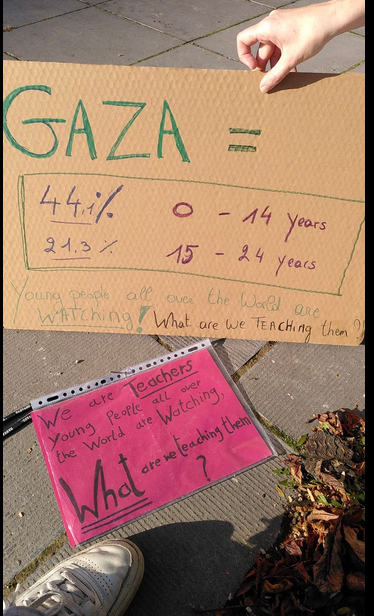 GAZA =
44.1% 0 - 14 years
21.3 % 15 - 24 years
Young people all over the World are
WATCHing! What are we TEACHing them ?!
We are Teachers
Young People all over
the World are Watching,
What are we teaching them
?